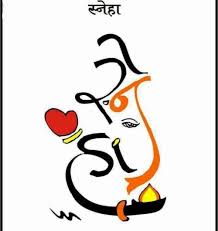 स्नेहा